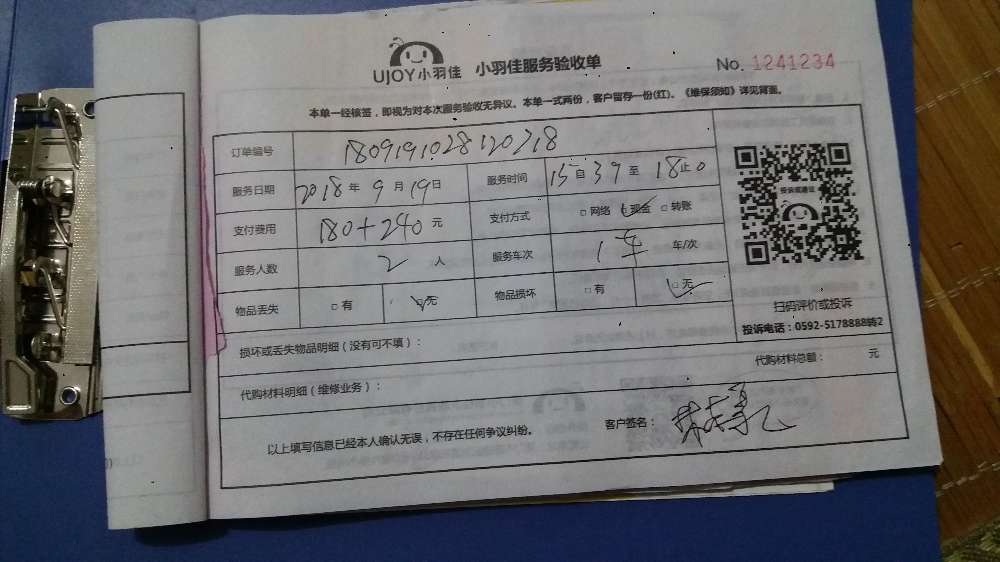 UJOY小羽佳 小羽佳服务验收单 No. 1241234
本单一经核签，即视为对本次服务验收无异议。本单一式两份，客户留存一份(红)。《维保须知》详见背面。
订单编号 1809191028120718
服务日期 2018年9月19日 服务时间 15自39至18止0
支付费用 180+240元 支付方式 □网络 □现金 □转账
服务人数 2人 服务车次 1车 车/次
物品丢失 □有 □无 物品损坏 □有 □无
投诉或建议
扫码评价或投诉
投诉电话：0592-5178888转2
损坏或丢失物品明细（没有可不填）：
代购材料明细（维修业务）： 代购材料总额： 元
以上填写信息已经本人确认无误，不存在任何争议纠纷。 客户签名：